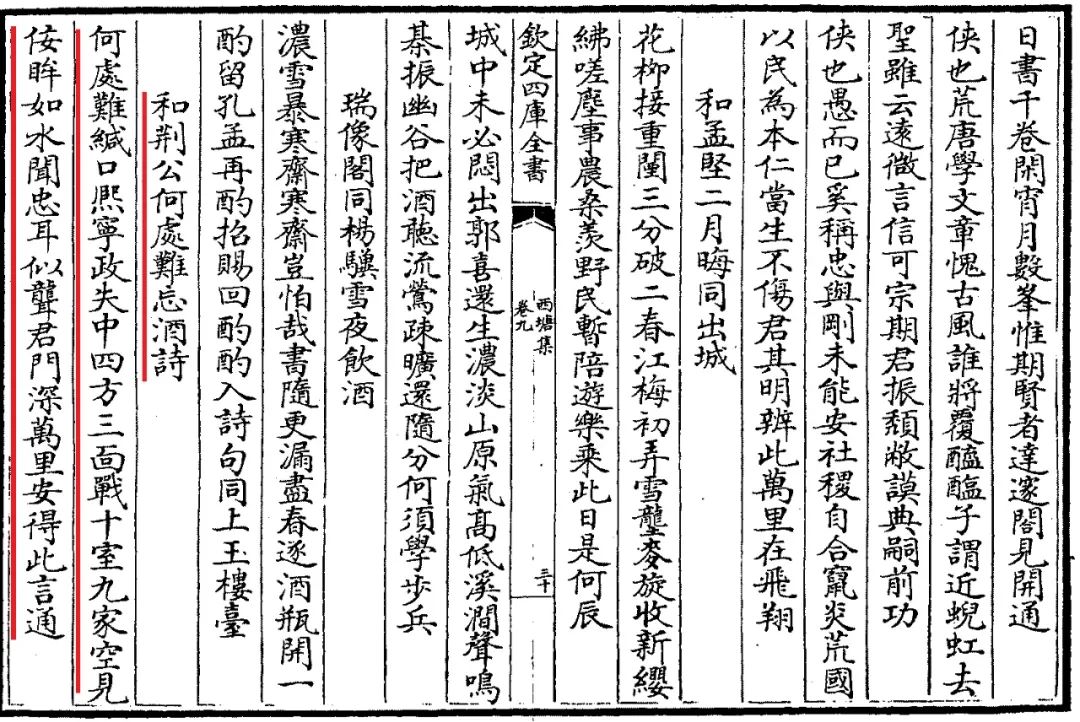 日書千卷閑宵月數峯惟期賢者達邃閣見開通
俠也荒唐學文章愧古風誰將覆醢醢子謂近蜺虹去
聖雖云遠微言信可宗期君振頽敝謨典嗣前功
俠也愚而已奚稱忠與剛未能安社稷自合竄炎荒國
以民為本仁當生不傷君其明辨此萬里在飛翔
和孟堅二月晦同出城
花柳接重闉三分破二春江梅初弄雪壟麥旋收新纓
紼嗟塵事農桑羡野民暫陪遊樂乘此日是何辰
欽定四庫全書
西塘集
卷九
三十
城中未必悶出郭喜還生濃淡山原氣高低溪澗聲鳴
棊振幽谷把酒聴流鶯疎曠還隨分何須學步兵
瑞像閣同楊驥雪夜飲酒
濃雪暴寒齋寒齋豈怕哉書隨更漏盡春逐酒瓶開一
酌留孔孟再酌招賜回酌酌入詩句同上玉樓臺
和荆公何處難忘酒詩
何處難緘口熙寧政失中四方三面戰十室九家空見
佞眸如水聞忠耳似聾君門深萬里安得此言通